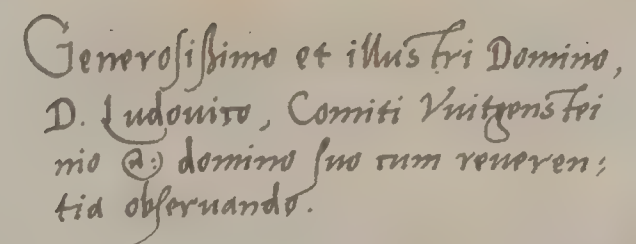 Generosissimo et illustri Domino,
D. Ludovico, Comiti Vuitgenstei
nio &: domino suo cum reueren:
tia obseruando.